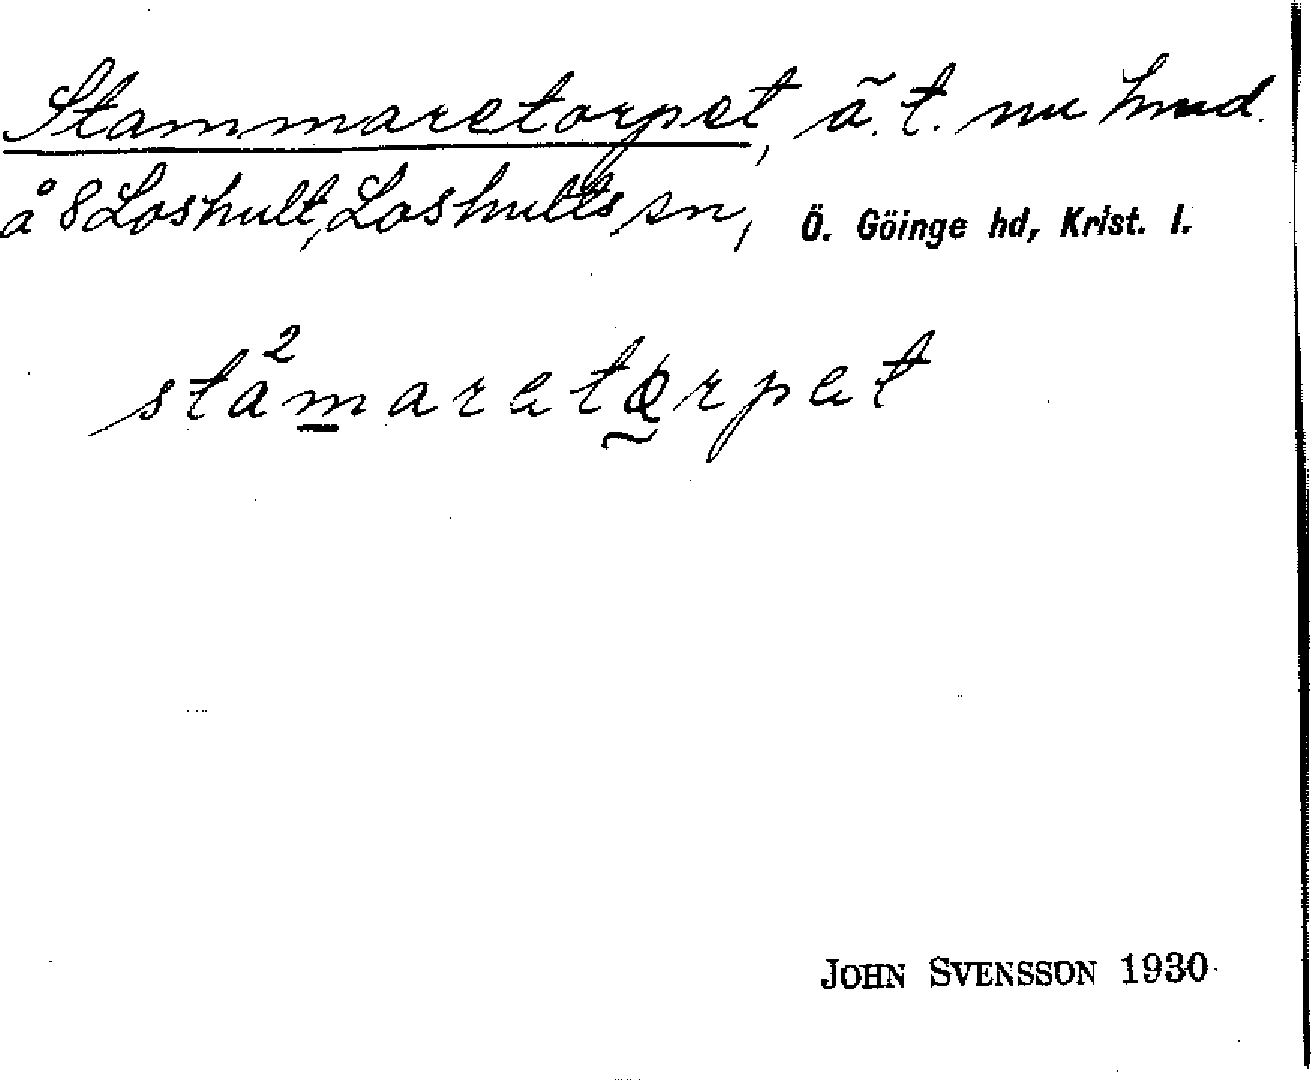 Stammaretorpet, ä. t. nu hmd.
å 8 Loshult, Loshults sn, Ö. Göinge hd, Krist. l.
sta²maretørpet
JOHN SVENSSON 1930